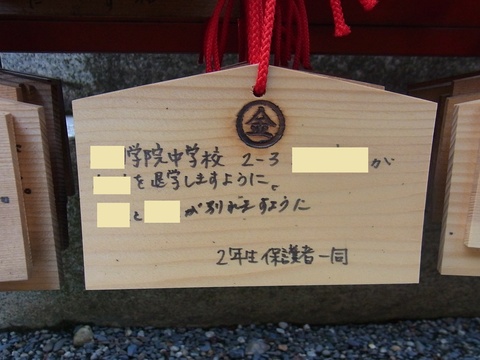 金
学院中学校 2-3 が
を退学しますように。
と が別れますように
2年生保護者一同